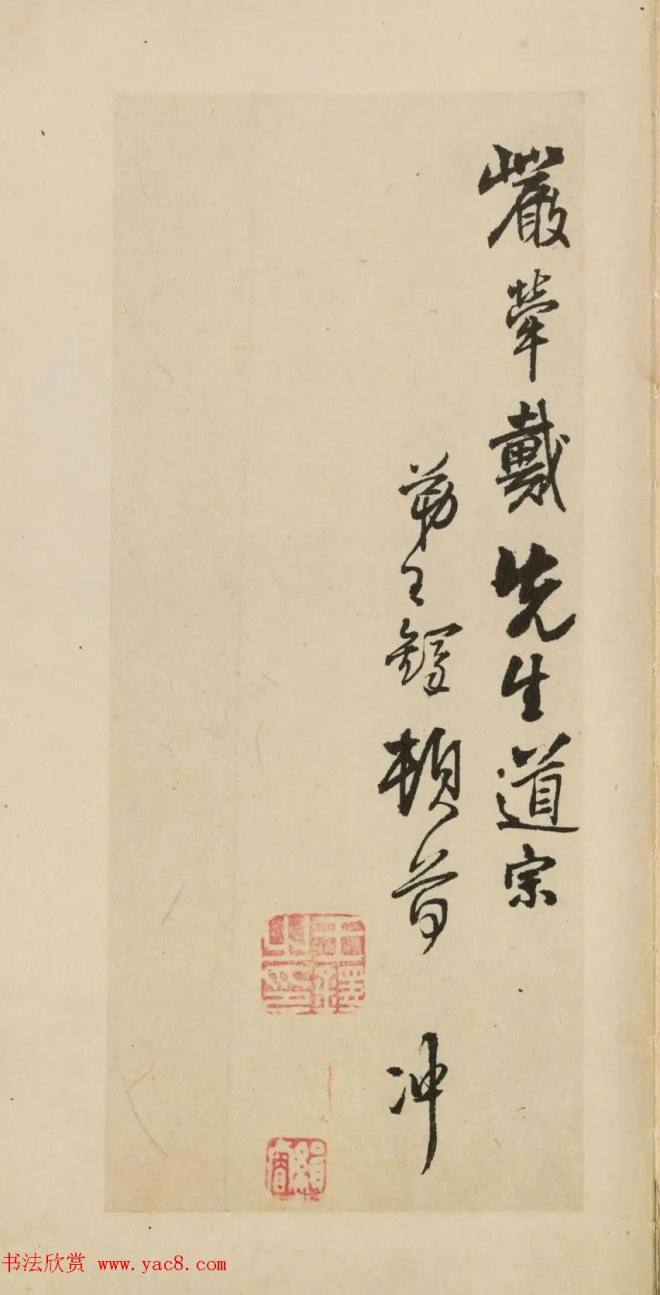 巖犖戴先生道宗
弟王鐸頓首 冲
王鐸之印
书法欣赏 www.yac8.com